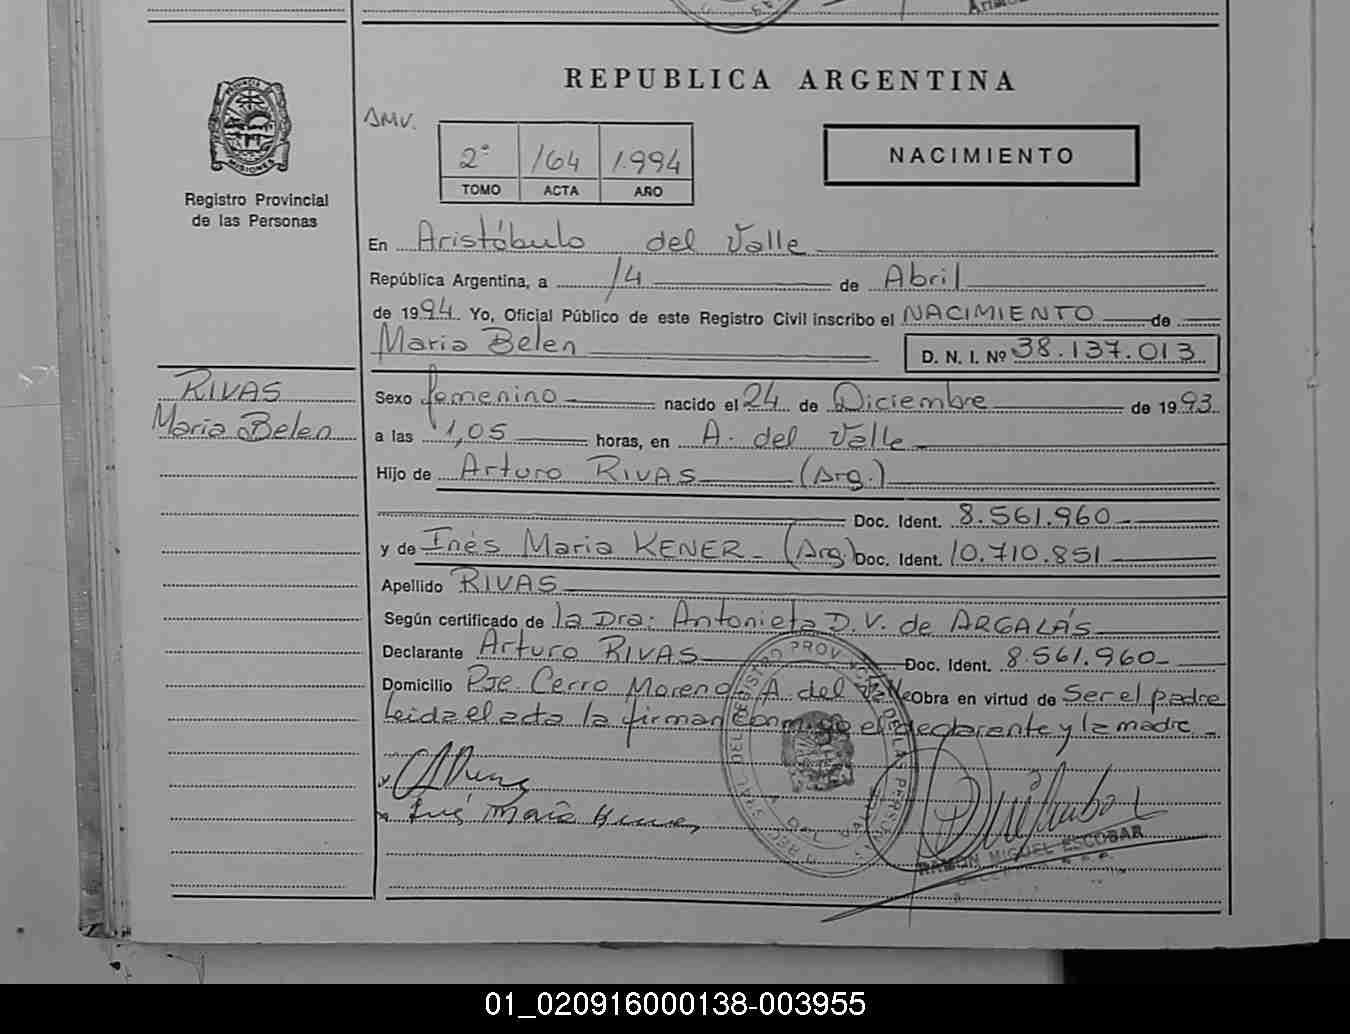 REPUBLICA ARGENTINA
PROVINCIA DE MISIONES
Registro Provincial
de las Personas
DMV.
2° 164 1.994
TOMO ACTA AÑO
NACIMIENTO
En Aristóbulo del Valle
República Argentina, a 14 de Abril
de 1994. Yo, Oficial Público de este Registro Civil inscribo el NACIMIENTO de
Maria Belen D. N. I. Nº 38.137.013
RIVAS
Maria Belen
Sexo femenino nacido el 24 de Diciembre de 1993
a las 1,05 horas, en A. del Valle
Hijo de Arturo RIVAS (Arg.)
Doc. Ident. 8.561.960
y de Inés Maria KENER (Arg.) Doc. Ident. 10.710.851
Apellido RIVAS
Según certificado de la Dra: Antonieta D.V. de ARGALÁS
Declarante Arturo RIVAS Doc. Ident. 8.561.960
Domicilio Pje Cerro Moreno, A del Valle Obra en virtud de Ser el padre
Leida el acta la firman conmigo el declarante y la madre
Inés Maria Kener
RAMON MIGUEL ESCOBAR
01_020916000138-003955